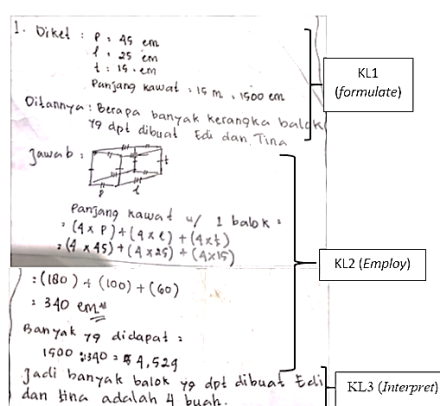 1. Diket : p = 45 cm
l = 25 cm
t = 15 cm
Panjang kawat = 15 m = 1500 cm
Ditannya : Berapa banyak kerangka balok
yg dpt dibuat Edi dan Tina
Jawab :
t
p l
Panjang kawat u/ 1 balok =
= (4 x p) + (4 x l) + (4 x t)
= (4 x 45) + (4 x 25) + (4 x 15)
= (180) + (100) + (60)
= 340 cm
Banyak yg didapat =
1500 : 340 = 4,529
Jadi banyak balok yg dpt dibuat Edi
dan tina adalah 4 buah.
KL1
(formulate)
KL2 (Employ)
KL3 (Interpret)